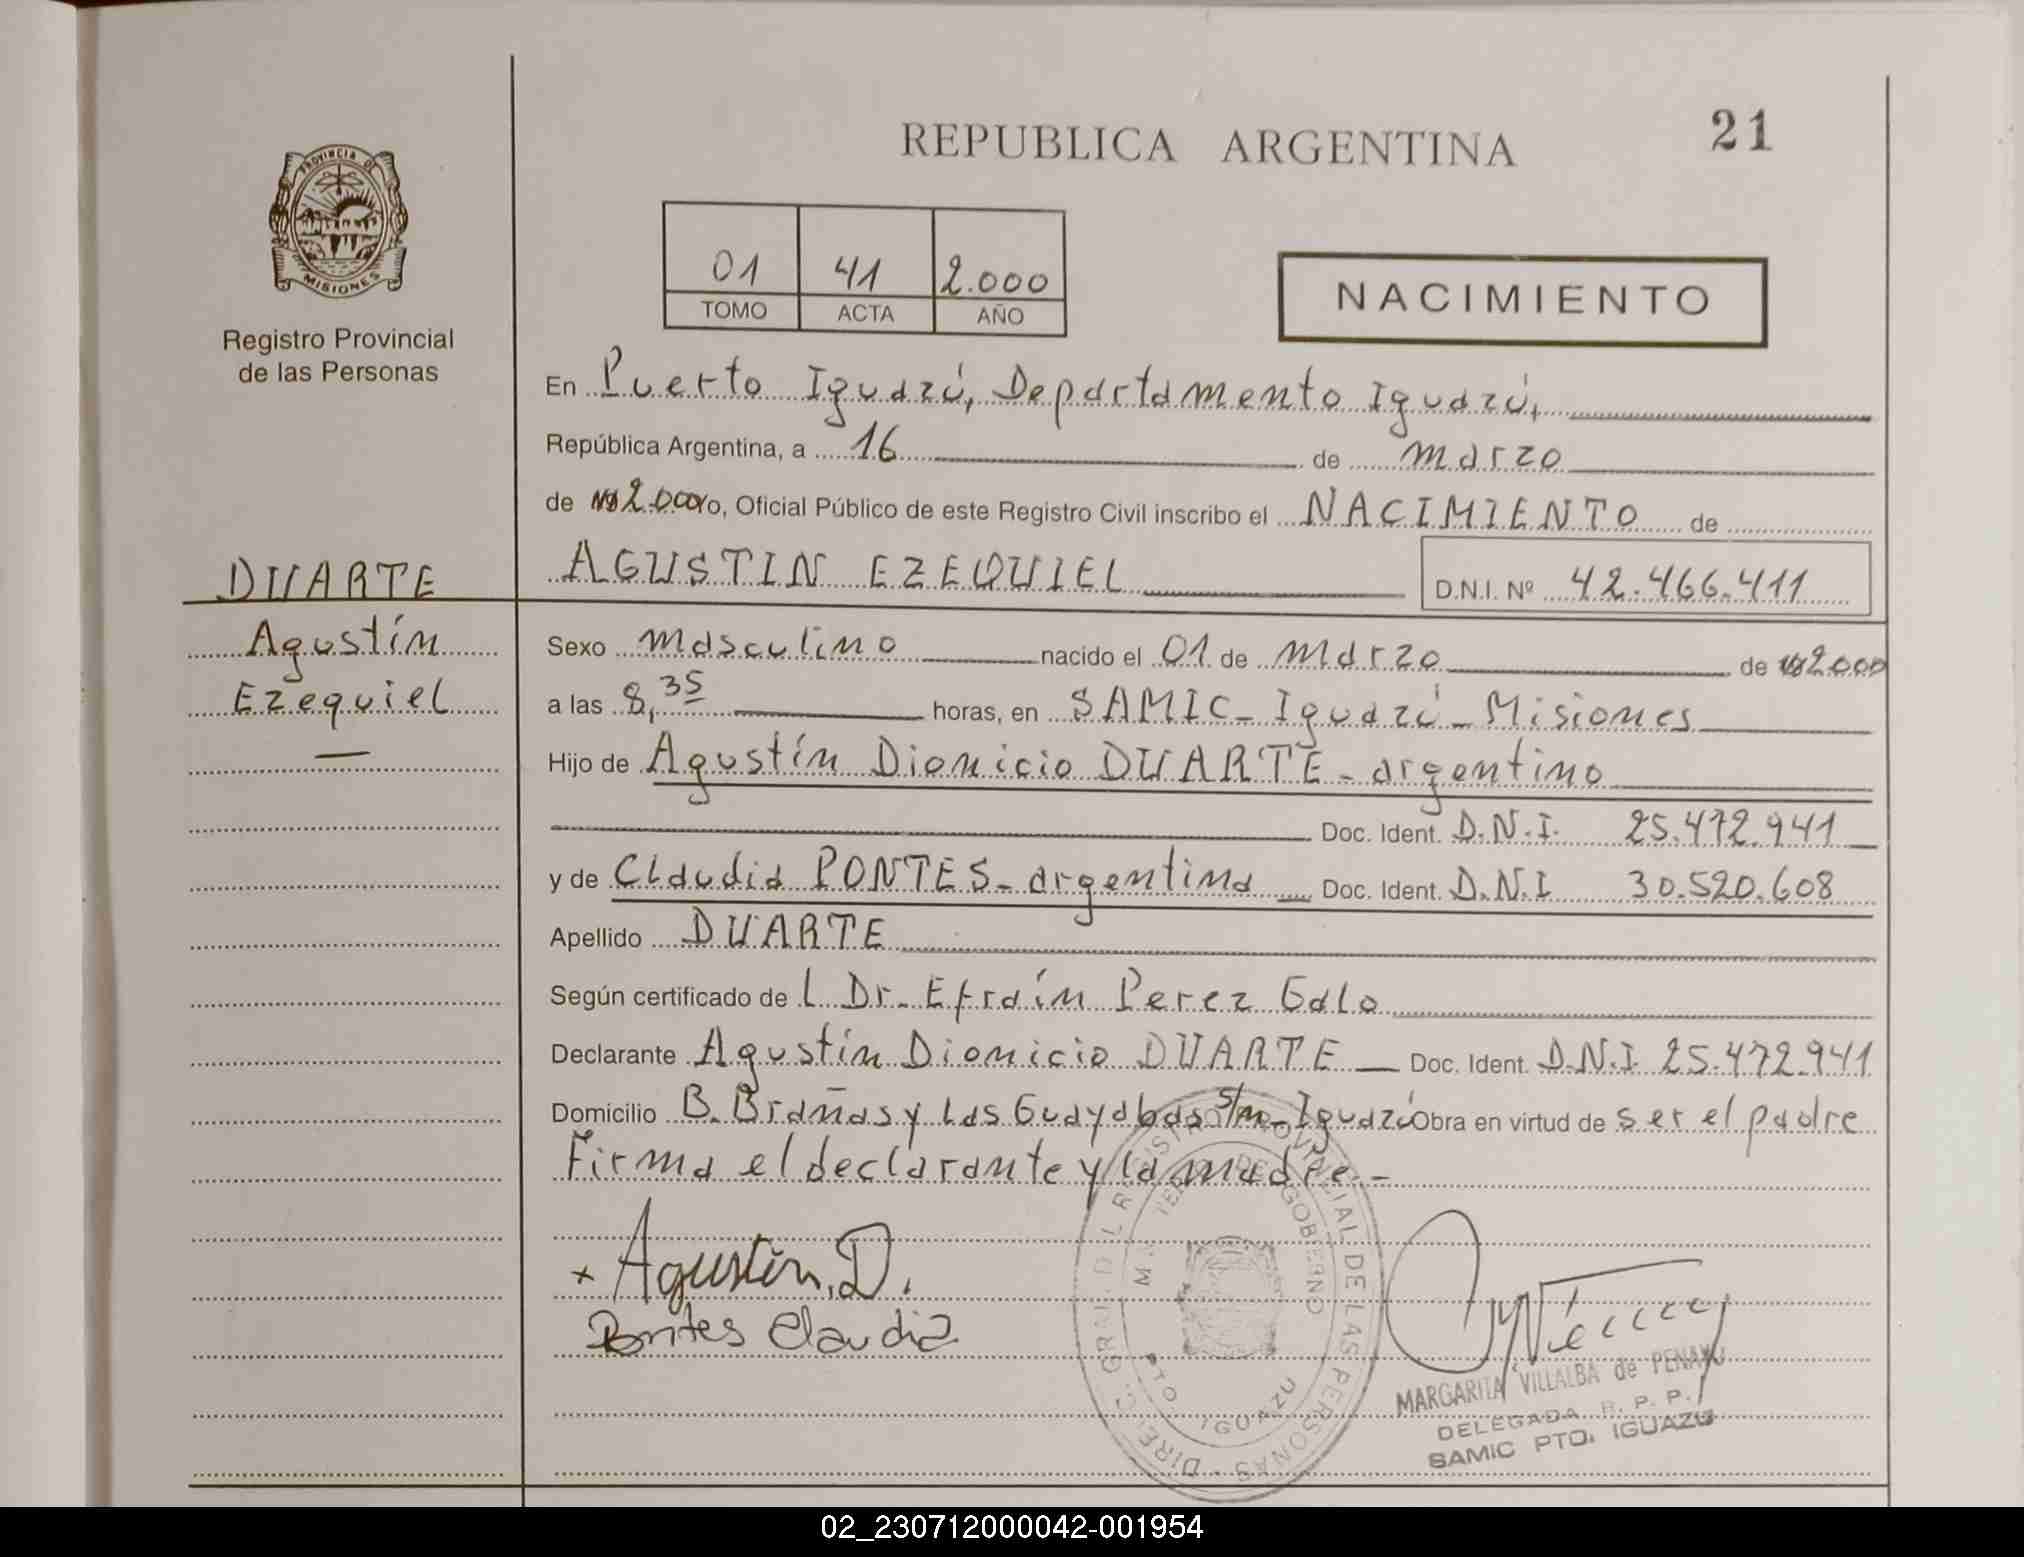 REPUBLICA ARGENTINA
21
PROVINCIA DE
MISIONES
Registro Provincial
de las Personas
01 41 2.000
TOMO ACTA AÑO
NACIMIENTO
En Puerto Iguazú, Departamento Iguazú,
República Argentina, a 16 de marzo
de 2.000 yo, Oficial Público de este Registro Civil inscribo el NACIMIENTO de
AGUSTIN EZEQUIEL D.N.I. Nº 42.466.411
DUARTE
Agustín
Ezequiel
Sexo masculino nacido el 01 de marzo de 2000
a las 8,35 horas, en SAMIC - Iguazú - Misiones
Hijo de Agustín Dionicio DUARTE - argentino
Doc. Ident. D.N.I. 25.472.941
y de Claudia PONTES - argentina Doc. Ident. D.N.I 30.520.608
Apellido DUARTE
Según certificado de l Dr. Efraín Perez Galo
Declarante Agustín Dionicio DUARTE Doc. Ident. D.N.I 25.472.941
Domicilio B. Brañas y Las Guayabas s/n - Iguazú Obra en virtud de ser el padre
Firma el declarante y la madre.-
+ Agustín. D.
Pontes Claudia
PTO IGUAZU
MARGARITA VILLALBA de
DELEGADA R. P. P.
SAMIC PTO. IGUAZU
02_230712000042-001954